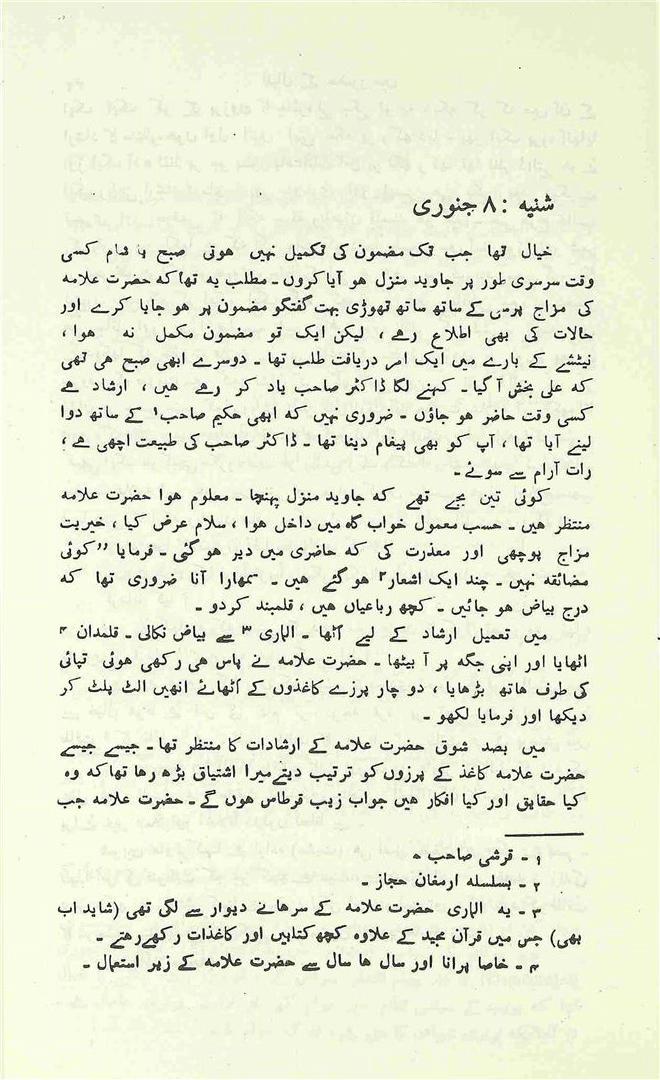 شنبہ : ۸ جنوری
خیال تھا جب تک مضمون کی تکمیل نہیں ہوتی صبح یا شام کسی
وقت سرسری طور پر جاوید منزل ہو آیا کروں ۔ مطلب یہ تھا کہ حضرت علامہ
کی مزاج پرسی کے ساتھ ساتھ تھوڑی بہت گفتگو مضمون پر ہو جایا کرے اور
حالات کی بھی اطلاع رہے ، لیکن ایک تو مضمون مکمل نہ ہوا ،
نیٹشے کے بارے میں ایک امر دریافت طلب تھا ۔ دوسرے ابھی صبح ہی تھی
کہ علی بخش آ گیا ۔ کہنے لگا ڈاکٹر صاحب یاد کر رہے ہیں ، ارشاد ہے
کسی وقت حاضر ہو جاؤں ۔ ضروری نہیں کہ ابھی حکیم صاحب۱ کے ساتھ دوا
لینے آیا تھا ، آپ کو بھی پیغام دینا تھا ۔ ڈاکٹر صاحب کی طبیعت اچھی ہے ،
رات آرام سے سوئے ۔
کوئی تین بجے تھے کہ جاوید منزل پہنچا ۔ معلوم ہوا حضرت علامہ
منتظر ہیں ۔ حسب معمول خواب گاہ میں داخل ہوا ، سلام عرض کیا ، خیریت
مزاج پوچھی اور معذرت کی کہ حاضری میں دیر ہو گئی ۔ فرمایا ”کوئی
مضائقہ نہیں ۔ چند ایک اشعار۲ ہو گئے ہیں ۔ تمھارا آنا ضروری تھا کہ
درج بیاض ہو جائیں ۔ کچھ رباعیاں ہیں ، قلمبند کر دو ۔
میں تعمیل ارشاد کے لیے اٹھا ۔ الماری ۳ سے بیاض نکالی ۔ قلمدان ۴
اٹھایا اور اپنی جگہ پر آ بیٹھا ۔ حضرت علامہ نے پاس ہی رکھی ہوئی تپائی
کی طرف ہاتھ بڑھایا ، دو چار پرزے کاغذوں کے اٹھائے انھیں الٹ پلٹ کر
دیکھا اور فرمایا لکھو ۔
میں بصد شوق حضرت علامہ کے ارشادات کا منتظر تھا ۔ جیسے جیسے
حضرت علامہ کاغذ کے پرزوں کو ترتیب دیتے میرا اشتیاق بڑھ رہا تھا کہ وہ
کیا حقایق اور کیا افکار ہیں جواب زیب قرطاس ہوں گے ۔ حضرت علامہ جب
۱ ۔ قرشی صاحب ۔
۲ ۔ بسلسلہ ارمغان حجاز ۔
۳ ۔ یہ الماری حضرت علامہ کے سرھانے دیوار سے لگی تھی (شاید اب
بھی) جس میں قرآن مجید کے علاوہ کچھ کتابیں اور کاغذات رکھے رہتے ۔
۴ ۔ خاصا پرانا اور سال ہا سال سے حضرت علامہ کے زیر استعمال ۔